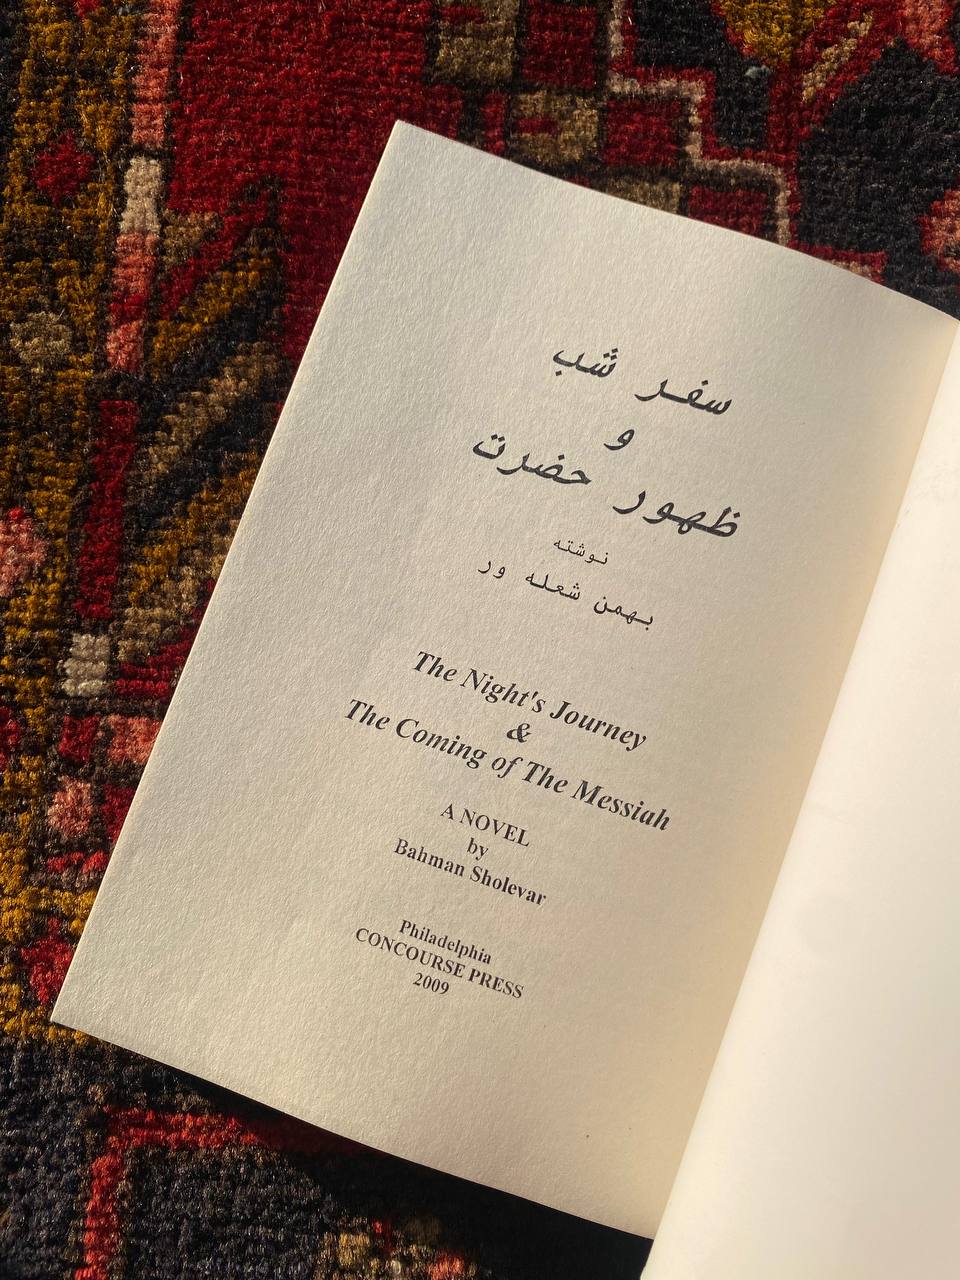 سفر شب
و
ظهور حضرت
نوشته
بهمن شعله ور
The Night's Journey
&
The Coming of The Messiah
A NOVEL
by
Bahman Sholevar
Philadelphia
CONCOURSE PRESS
2009